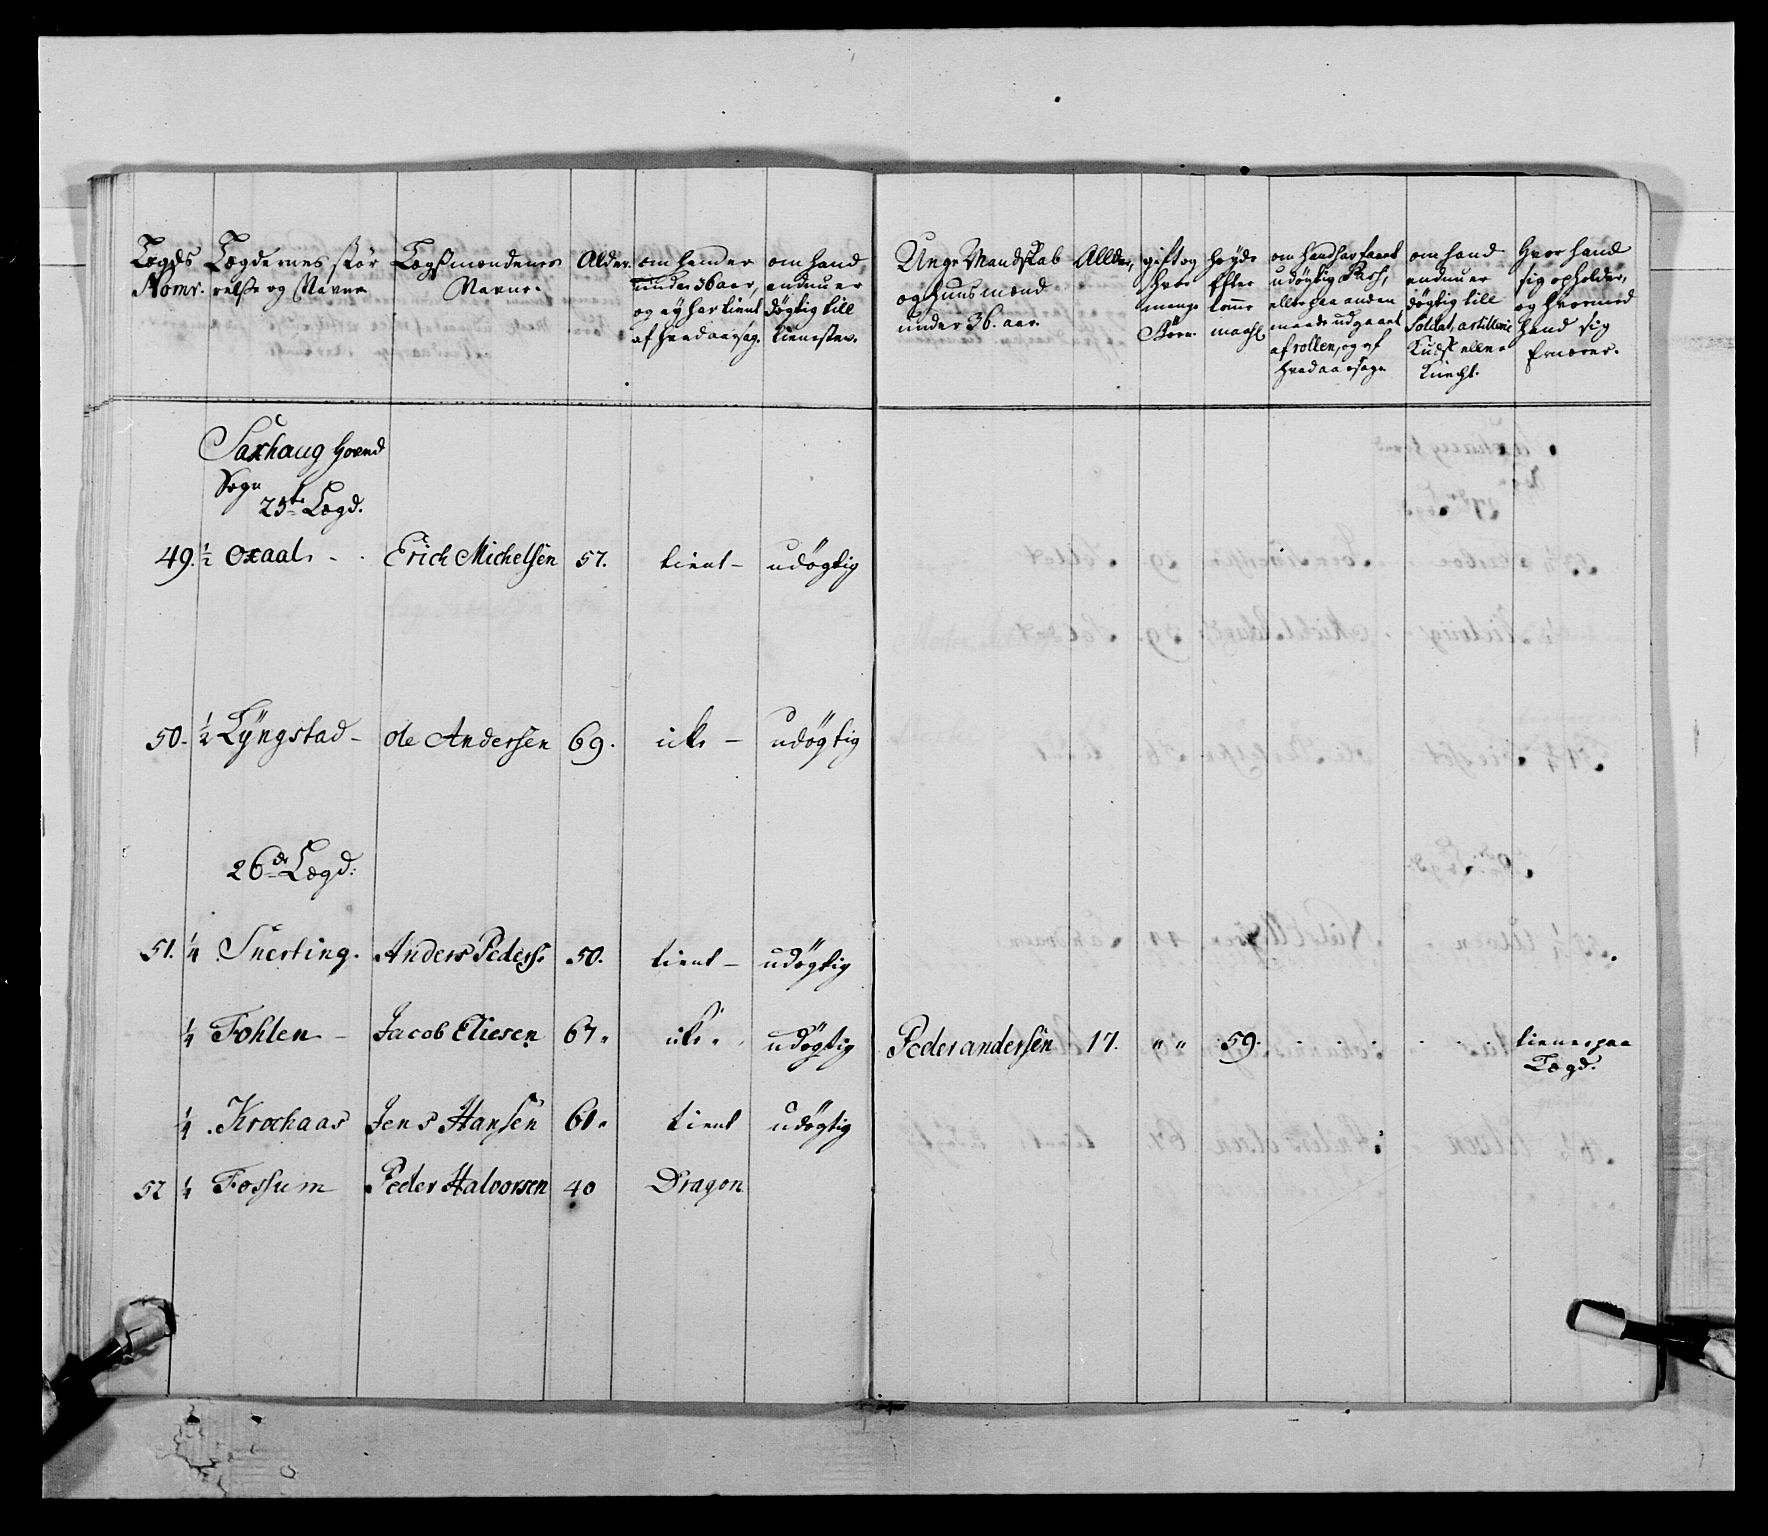 Lægds Nomr.
Lægdernes stør relse og Navne
Lægsmændenes Navne.
Alder.
om hand er under 36 aar, og ey har tient af hvad aarsag.
om hand endnu er døgtig till tienesten.
Unge Mandskab og Huusmænd under 36. aar.
Allder,
gift og hvor mange Børn
høyde efter tomme maahl
om hand har faaet udøgtig Pass, eller paa anden maade udgaaet af rollen, og af hvad aarsage
om hand endnu er døgtig till Soldat, artillerie Kudsk eller Knegt.
Hvor hand sig opholder, og hvormed hand sig Ernærer.
Saxhaug hoved
Sogn
25te Lægd.
49. ½ Oxaal - . Erich Michelsen 57. tient - udøgtig
50. ½ Lÿngstad - Ole Andersen 69. icke - udøgtig
26de Lægd:
51. ¼ Snerting. Anders Peders: 50. tient - udøgtig
¼ Fohlen - Jacob Eliesen 67. icke. udøgtig Peder andersen 17. " " 59. . . . . . . tiener paa
Lægd.
¼ Krochaas Jens Hansen 61. tient udøgtig
52 ¼ Fossum Peder Halvorsen 40 Dragon